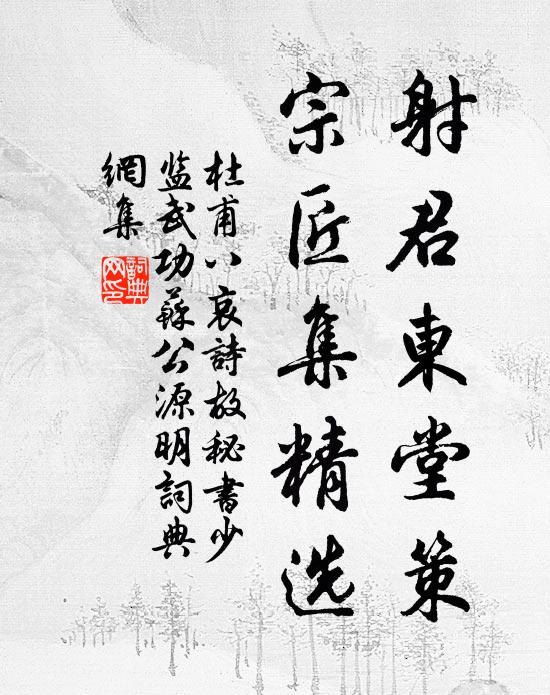 射君東堂策
宗匠集精选
杜甫八哀詩故秘書少
监武功蘇公源明詞典
網集
詞典
网印